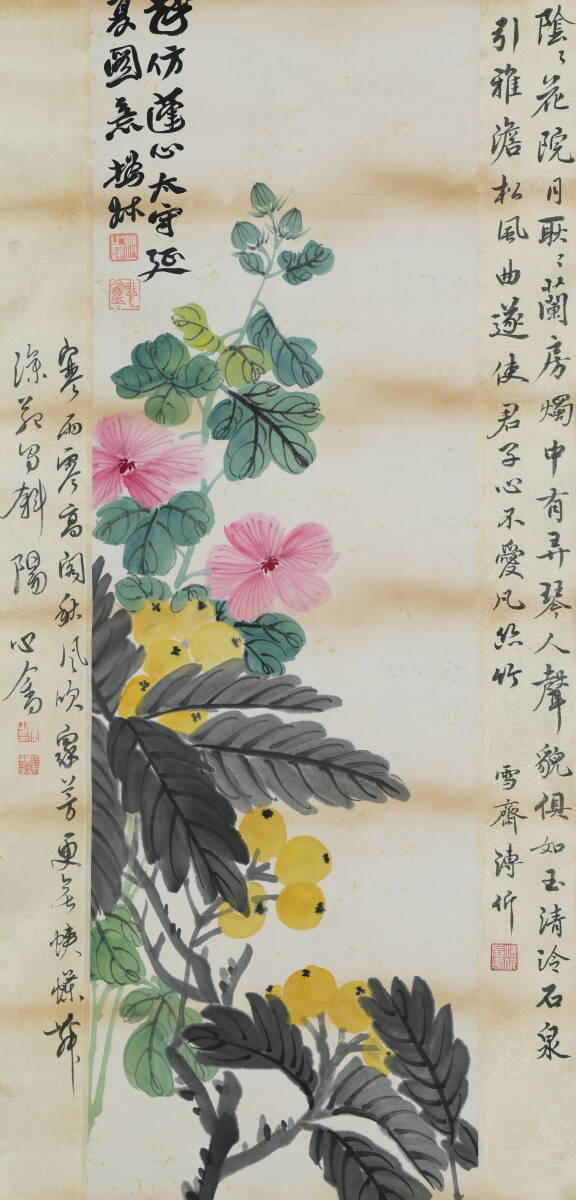 陰〻花院月耿〻蘭房燭中有弄琴人聲貌俱如玉清泠石泉
引雅澹松風曲遂使君子心不愛凡絲竹
雪齋溥伒
仿蓬心太守延
夏圖意
寒雨零高閣秋風吹眾芳更無蛺蝶舞
深苑斜陽
心畬